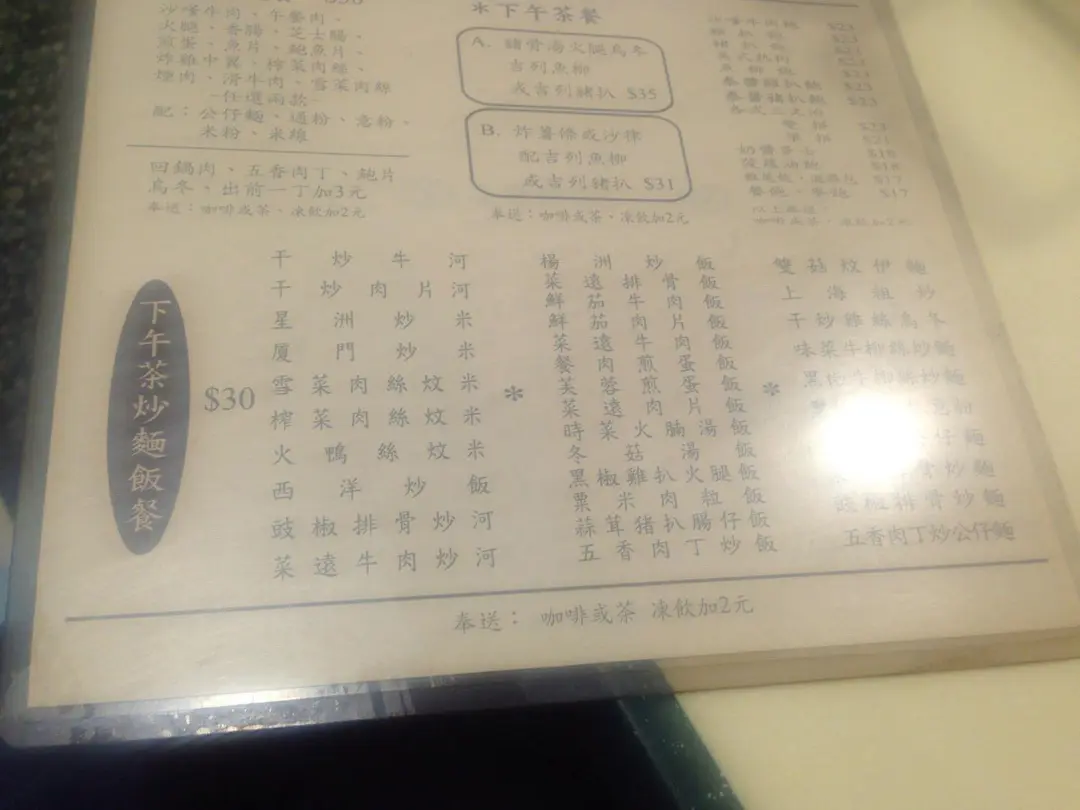 沙嗲牛肉、午餐肉、
火腿、香腸、芝士腸、
煎蛋、魚片、鮑魚片、
炸雞中翼、榨菜肉絲、
煙肉、滑牛肉、雪菜肉絲
-任選兩款-
配：公仔麵、通粉、意粉、
米粉、米線
回鍋肉、五香肉丁、鮑片
烏冬、出前一丁加3元
奉送：咖啡或茶、凍飲加2元
*下午茶餐
A. 豬骨湯火腿烏冬
吉列魚柳
或吉列豬扒 $35
B. 炸薯條或沙律
配吉列魚柳
或吉列豬扒 $31
奉送：咖啡或茶、凍飲加2元
沙嗲牛肉飽 $23
$23
$23
$23
奶醬多士
$17
下午茶炒麵飯餐
$30
干炒牛河
干炒肉片河
星洲炒米
廈門炒米
雪菜肉絲炆米
榨菜肉絲炆米
火鴨絲炆米
西洋炒飯
豉椒排骨炒河
菜遠牛肉炒河
*
楊洲炒飯
菜遠排骨飯
鮮茄牛肉飯
鮮茄肉片飯
菜遠牛肉飯
餐肉煎蛋飯
芙蓉煎蛋飯
菜遠肉片飯
時菜火腩湯飯
冬菇湯飯
黑椒雞扒火腿飯
粟米肉粒飯
蒜茸豬扒腸仔飯
五香肉丁炒飯
*
雙菇炆伊麵
上海粗炒
干炒雞絲烏冬
味菜牛柳絲炒麵
仔麵
炒麵
豉椒排骨炒麵
五香肉丁炒公仔麵
奉送： 咖啡或茶 凍飲加2元